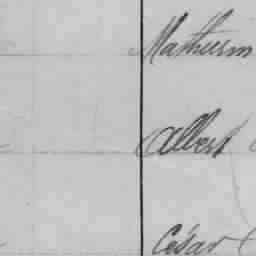 Mathurin
Albert
César